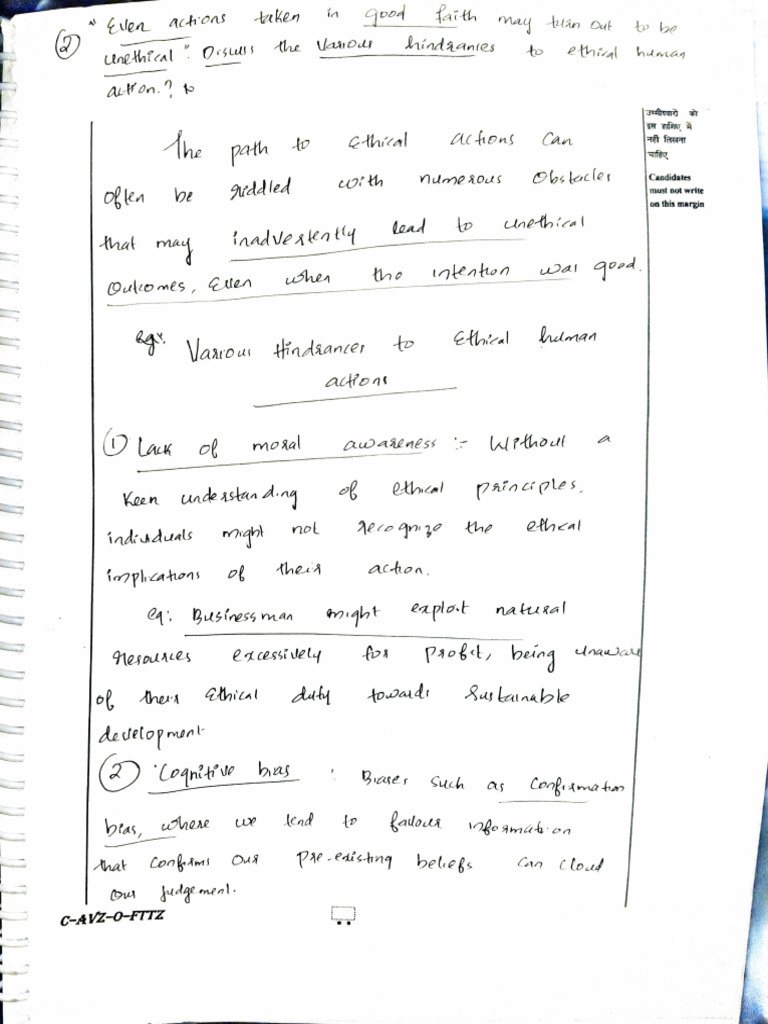 ② "Even actions taken in good faith may turn out to be
unethical". Discuss the various hindrances to ethical human
action.?
उम्मीदवारों को
इस हाशिए में
नहीं लिखना
चाहिए
Candidates
must not write
on this margin
The path to Ethical actions can
often be riddled with numerous obstacles
that may inadvertently lead to unethical
outcomes, Even when the intention was good.
eg:
Various Hindrances to Ethical human
actions
① Lack of moral awareness :- Without a
keen understanding of ethical principles,
individuals might not recognize the ethical
implications of their action.
eg: Businessman might exploit natural
resources excessively for profit, being unaware
of their Ethical duty towards sustainable
development.
② Cognitive bias : Biases such as confirmation
bias, where we tend to favour information
that confirms our pre-existing beliefs can cloud
our judgement.
C-AVZ-O-FTTZ